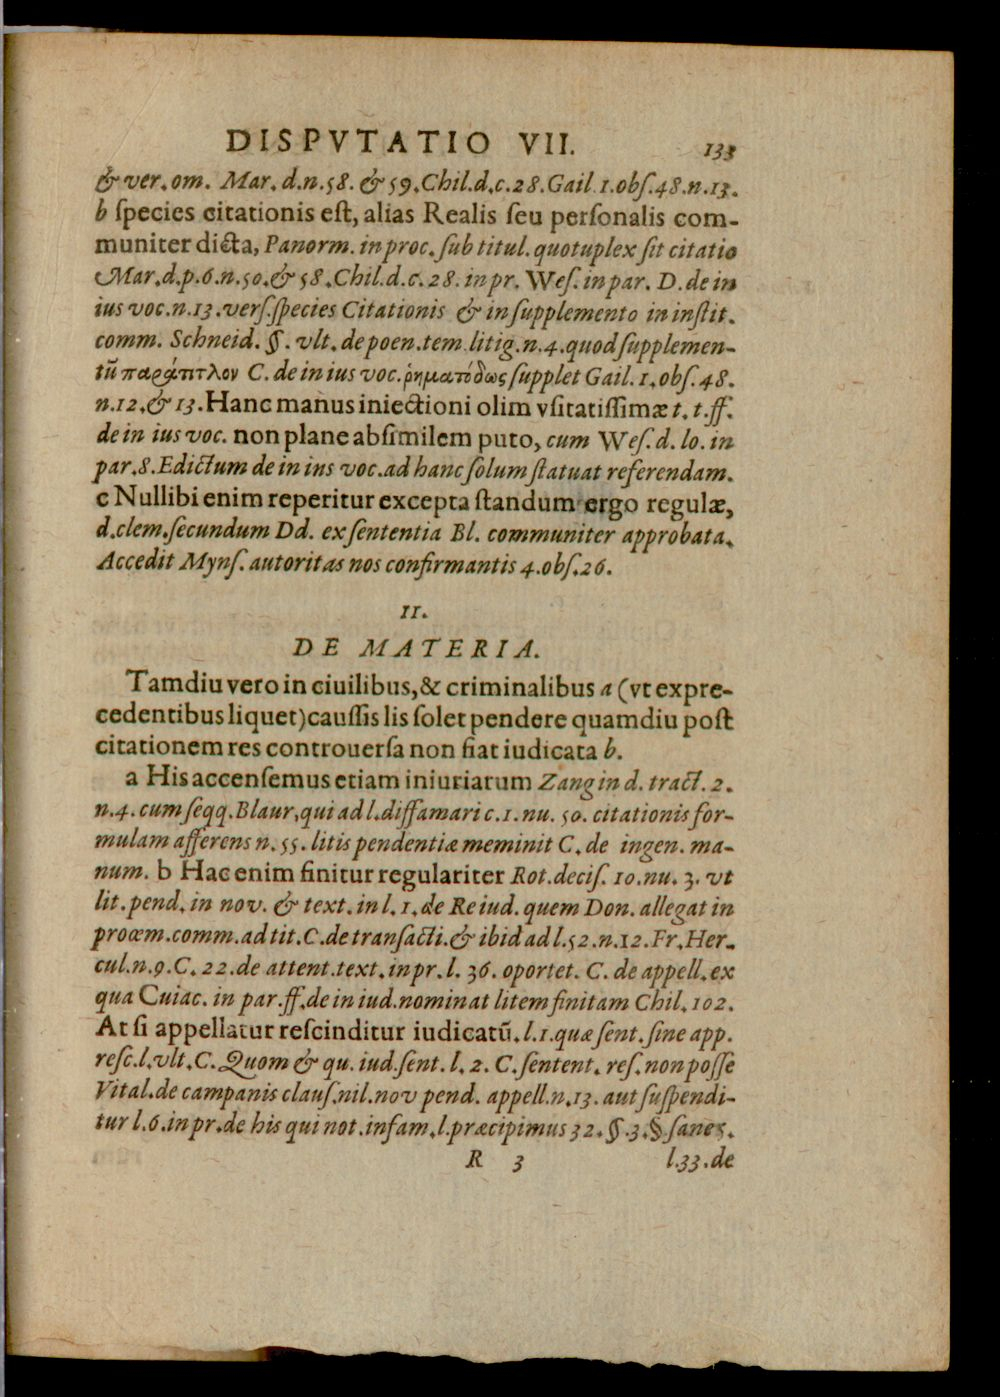 DISPVTATIO VII. 133
& ver. om. Mar. d.n.58. & 59. Chil. d. c. 28. Gail. 1. obſ. 48. n. 13.
b ſpecies citationis eſt, alias Realis ſeu perſonalis com-
muniter dicta, Panorm. in proc. ſub titul. quotuplex ſit citatio
Mar. d. p. 6. n. 50. & 58. Chil. d. c. 28. in pr. Weſ. in par. D. de in
ius voc. n. 13. verſ. ſpecies Citationis & in ſupplemento in inſtit.
comm. Schneid. §. vlt. de poen. tem. litig. n. 4. quod ſupplemen-
tū C. de in ius voc. ſupplet Gail. 1. obſ. 48.
n. 12. & 13. Hanc manus iniectioni olim vſitatiſſimæ t. t. ff.
de in ius voc. non plane abſimilem puto, cum Weſ. d. lo. in
par. 8. Edictum de in ins voc. ad hanc ſolum ſtatuat referendam.
c Nullibi enim reperitur excepta ſtandum ergo regulæ,
d. clem. ſecundum Dd. ex ſententia Bl. communiter approbata.
Accedit Mynſ. autoritas nos confirmantis 4. obſ. 26.
II.
DE MATERIA.
Tamdiu vero in ciuilibus, & criminalibus a (vt ex præ-
cedentibus liquet) cauſſis lis ſolet pendere quamdiu poſt
citationem res controuerſa non fiat iudicata b.
a His accenſemus etiam iniuriarum Zang in d. tract. 2.
n. 4. cum ſeqq. Blaur, qui ad l. diffamari c. 1. nu. 50. citationis for-
mulam afferens n. 55. litis pendentiæ meminit C. de ingen. ma-
num. b Hac enim finitur regulariter Rot. deciſ. 10. nu. 3. vt
lit. pend. in nov. & text. in l. 1. de Re iud. quem Don. allegat in
proœm. comm. ad tit. C. de tranſacti. & ibid ad l. 52. n. 12. Fr. Her-
cul. n. 9. C. 22. de attent. text. in pr. l. 36. oportet. C. de appell. ex
qua Cuiac. in par. ff. de in iud. nominat litem finitam Chil. 102.
At ſi appellatur reſcinditur iudicatū. l. 1. quæ ſent. ſine app.
reſc. l. vlt. C. Quom & qu. iud. ſent. l. 2. C. ſentent. reſ. non poſſe
Vital. de campanis clauſ. nil. nov pend. appell. n. 13. aut ſuſpendi-
tur l. 6. in pr. de his qui not. infam. l. præcipimus 32. §. 3. §. ſane 5.
R 3 l. 33. de